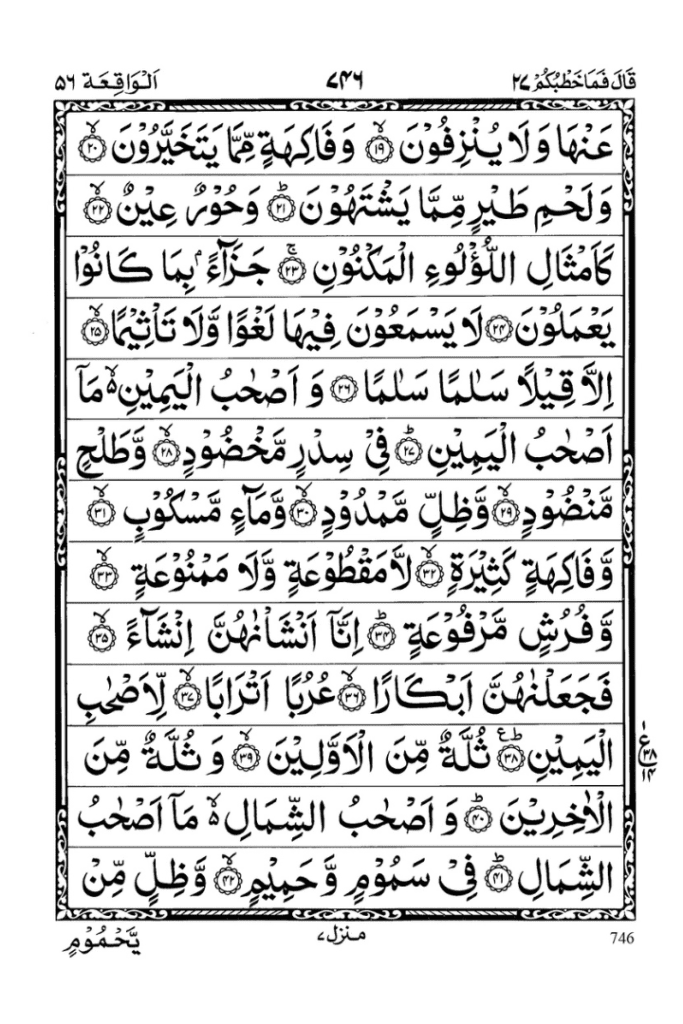 قَالَ فَمَا خَطْبُكُمْ ٢٧ ٧٤٦ اَلْوَاقِعَة ٥٦
عَنْهَا وَلَا يُنْزِفُوْنَ ۙ﴿١٩﴾ وَفَاكِهَةٍ مِّمَّا يَتَخَيَّرُوْنَ ۙ﴿٢٠﴾
وَلَحْمِ طَيْرٍ مِّمَّا يَشْتَهُوْنَ ؕ﴿٢١﴾ وَحُوْرٌ عِيْنٌ ۙ﴿٢٢﴾
كَاَمْثَالِ اللُّؤْلُوءِ الْمَكْنُوْنِ ۚ﴿٢٣﴾ جَزَآءًۢ بِمَا كَانُوْا
يَعْمَلُوْنَ ﴿٢٤﴾ لَا يَسْمَعُوْنَ فِيْهَا لَغْوًا وَّلَا تَاْثِيْمًا ۙ﴿٢٥﴾
اِلَّا قِيْلًا سَلٰمًا سَلٰمًا ﴿٢٦﴾ وَ اَصْحٰبُ الْيَمِيْنِ ۙ۬ مَاۤ
اَصْحٰبُ الْيَمِيْنِ ؕ﴿٢٧﴾ فِيْ سِدْرٍ مَّخْضُوْدٍ ۙ﴿٢٨﴾ وَّطَلْحٍ
مَّنْضُوْدٍ ۙ﴿٢٩﴾ وَّظِلٍّ مَّمْدُوْدٍ ۙ﴿٣٠﴾ وَّمَآءٍ مَّسْكُوْبٍ ۙ﴿٣١﴾
وَّفَاكِهَةٍ كَثِيْرَةٍ ۙ﴿٣٢﴾ لَّا مَقْطُوْعَةٍ وَّلَا مَمْنُوْعَةٍ ۙ﴿٣٣﴾
وَّفُرُشٍ مَّرْفُوْعَةٍ ؕ﴿٣٤﴾ اِنَّاۤ اَنْشَاْنٰهُنَّ اِنْشَآءً ۙ﴿٣٥﴾
فَجَعَلْنٰهُنَّ اَبْكَارًا ۙ﴿٣٦﴾ عُرُبًا اَتْرَابًا ۙ﴿٣٧﴾ لِّاَصْحٰبِ
الْيَمِيْنِ ؕ﴿٣٨﴾ ثُلَّةٌ مِّنَ الْاَوَّلِيْنَ ۙ﴿٣٩﴾ وَ ثُلَّةٌ مِّنَ
ع ١ ٣٨ ١٤
الْاٰخِرِيْنَ ؕ﴿٤٠﴾ وَ اَصْحٰبُ الشِّمَالِ ۙ۬ مَاۤ اَصْحٰبُ
الشِّمَالِ ؕ﴿٤١﴾ فِيْ سَمُوْمٍ وَّحَمِيْمٍ ۙ﴿٤٢﴾ وَّظِلٍّ مِّنْ
746 منزل ٧ يَّحْمُوْمٍ